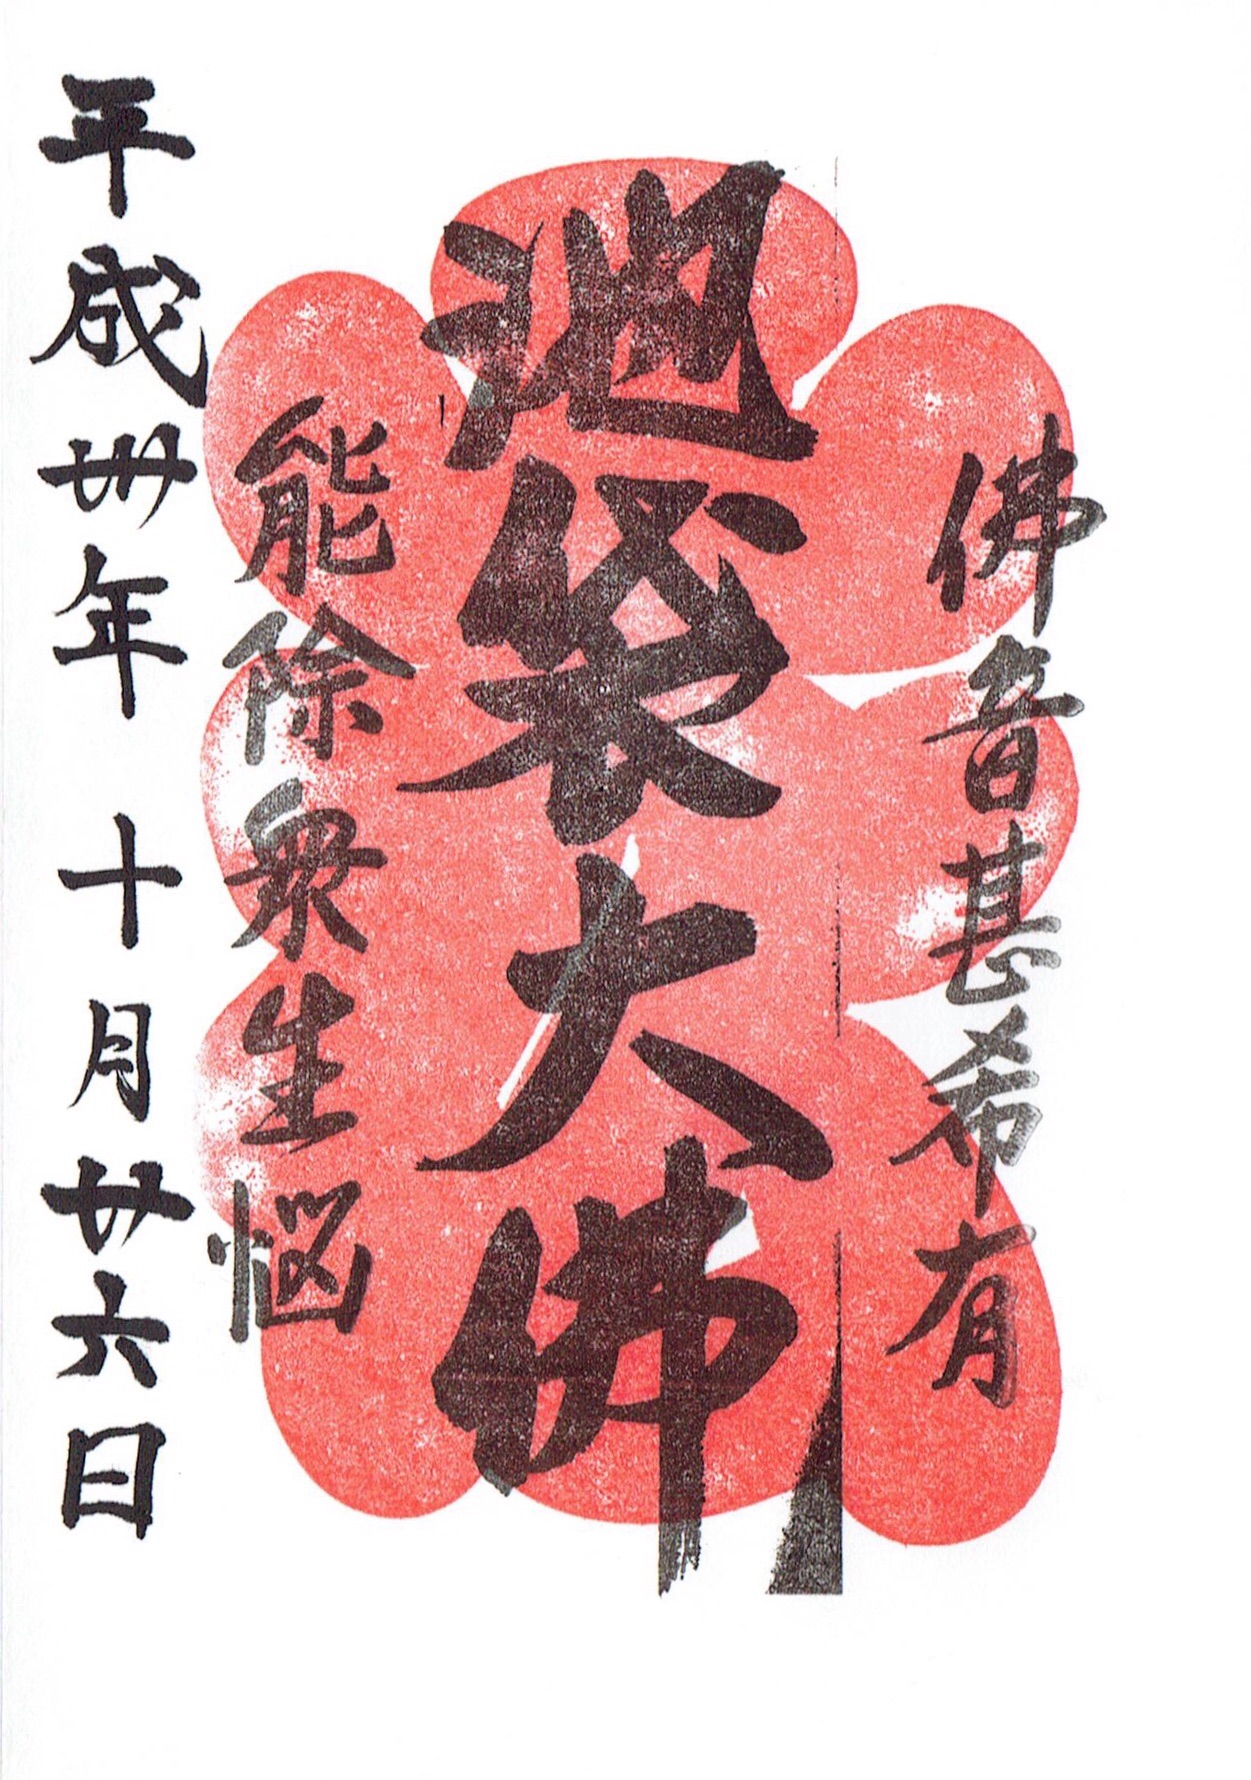 佛音甚希有
池袋大佛
能除衆生悩
平成卅年 十月廿六日